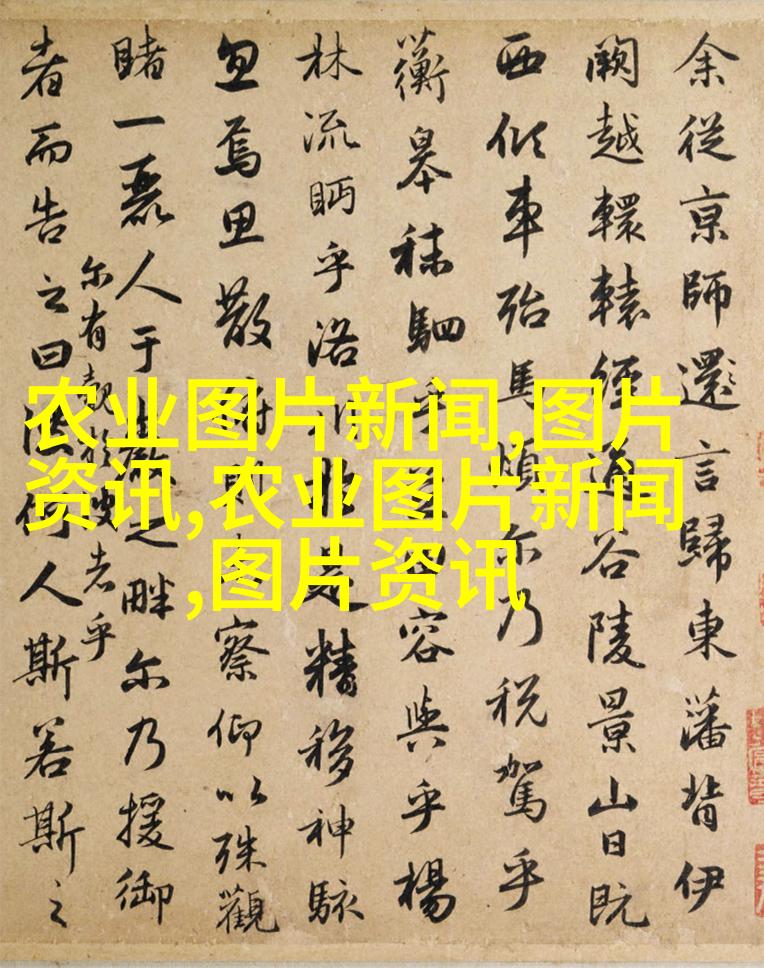 余從京師還言歸東藩背伊
闕越轘轅經通谷陵景山日既
西傾車殆馬煩尔乃税駕乎
蘅皋秣駟乎容與乎楊
林流眄乎洛川於是精移神駭
忽焉思散俯則察仰以殊觀
睹一麗人于巖之畔尔乃援御
者而告之曰何人斯若斯之
尔有覿於彼者乎
农业图片新闻,图片
资讯,农业图片新闻
,图片资讯